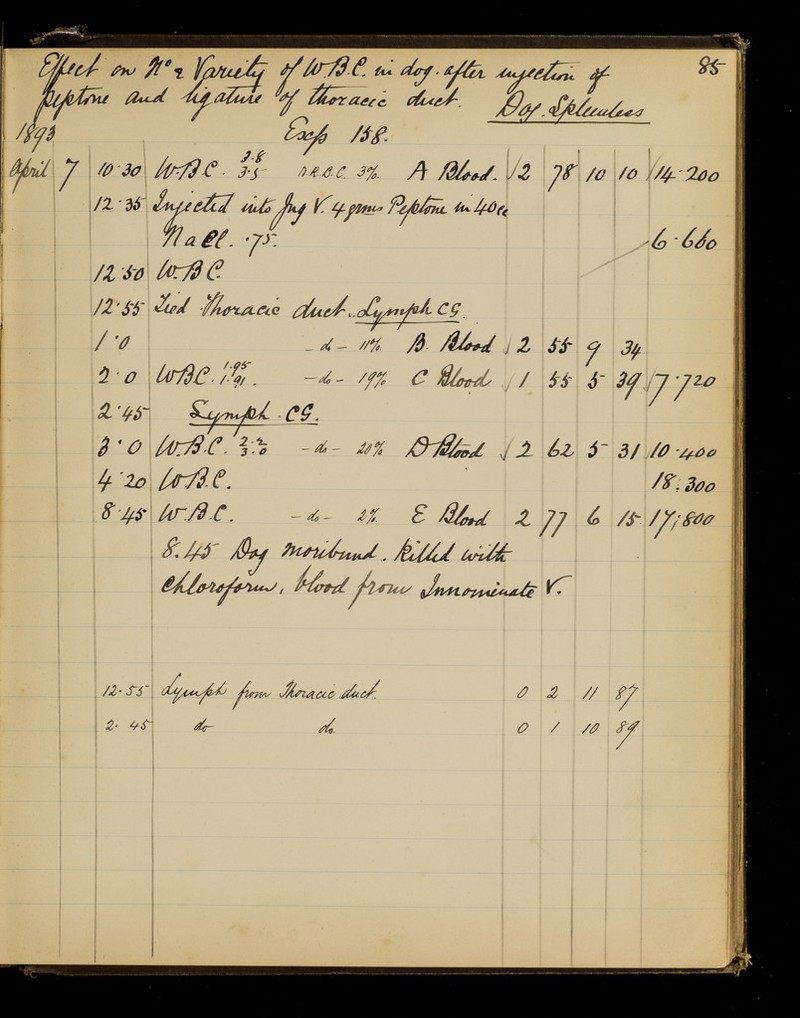 Effect on No & Variety of W.B.C. in dog. after injection of 85
peptone and ligature of thoracic duct. Dog. Spleenless
1893 Exp 158.
April 7 10.30 W.B.C. 3.8 3.5 N.R.B.C. 3% A Blood. √2 78 10 10 14.200
12.35 Injected into Jug V. 4 grms Peptone in 40cc
NaCl. .75. 6.660
12.50 W.B.C.
12.55 Tied Thoracic duct. Lymph CG.
1.0 -do- 11% B. Blood √2 55 9 34
2.0 W.B.C. 1.95 1.91. -do- 19% C Blood √1 55 5 39 7.720
2.45 Lymph. CG.
3.0 W.B.C. 2.2 3.0 -do- 20% D Blood √2 62 5 31 10.400
4.20 W.B.C. 18.300
8.45 W.B.C. -do- 2% E Blood 2 77 6 15 17,800
8.45 Dog moribund. Killed with
Chloroform, blood from Innominate V.
12.55 Lymph from Thoracic duct. 0 2 11 87
2.45 do do. 0 1 10 89